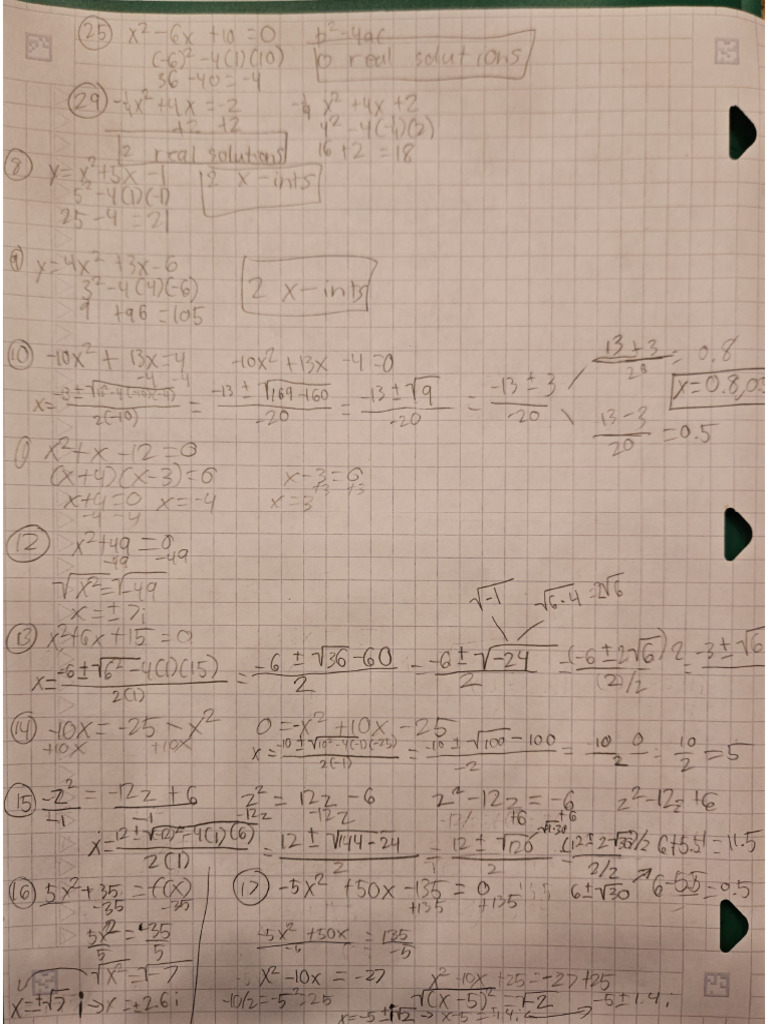 25 x² - 6x + 10 = 0 b² - 4ac
(-6)² - 4(1)(10) 0 real solutions
36 - 40 = -4
29 -¼x² + 4x = -2 -¼ x² + 4x + 2
+2 +2 4² - 4(-¼)(2)
2 real solutions 16 + 2 = 18
8 y = x² + 5x - 1 2 x-ints
5² - 4(1)(-1)
25 - 4 = 21
9 y = 4x² + 3x - 6
3² - 4(4)(-6) 2 x-ints
9 + 96 = 105
10 -10x² + 13x = 4 -10x² + 13x - 4 = 0 (13 + 3)/20 = 0.8
-4 -4
x = (-13 ± √(13² - 4(-10)(-4)))/2(-10) = (-13 ± √(169 - 160))/-20 = (-13 ± √9)/-20 = (-13 ± 3)/-20 x = 0.8, 0.5
(13 - 3)/20 = 0.5
x² + x - 12 = 0
(x + 4)(x - 3) = 0 x - 3 = 0
+3 +3
x + 4 = 0 x = -4 x = 3
-4 -4
12 x² + 49 = 0
-49 -49
√x² = √-49 √-1 √6·4 = 2√6
x = ± 7i
13 x² + 6x + 15 = 0
x = (-6 ± √(6² - 4(1)(15)))/2(1) = (-6 ± √(36 - 60))/2 = (-6 ± √-24)/2 = (-6 ± 2√6)/2 / (2)/2 = -3 ± √6
14 -10x = -25 - x² 0 = -x² + 10x - 25
+10x +10x x = (-10 ± √(10² - 4(-1)(-25)))/2(-1) = (-10 ± √(100 - 100))/-2 = (10 0)/2 = 10/2 = 5
15 -z² = -12z + 6 z² = 12z - 6 z² - 12z = -6 z² - 12z + 6
-1 -1 -12z -12z +6 +6
x = (12 ± √((-12)² - 4(1)(6)))/2(1) = (12 ± √(144 - 24))/2 = (12 ± √120)/2 √4·30 = (12 ± 2√30)/2 / 2/2 6 + 5.5 = 11.5
6 ± √30 6 - 5.5 = 0.5
16 5x² + 35 = 17 -5x² + 50x - 135 = 0
-35 -35 +135 +135
5x²/5 = -35/5 (-5x² + 50x)/-5 = 135/-5
√x² = √-7 x² - 10x = -27 x² - 10x + 25 = -27 + 25
x = ±√7 i → x = ± 2.6i -10/2 = -5² = 25 √(x - 5)² = √-2 -5 ± 1.4i
x = -5 ± i√2 → x - 5 = 1.4i